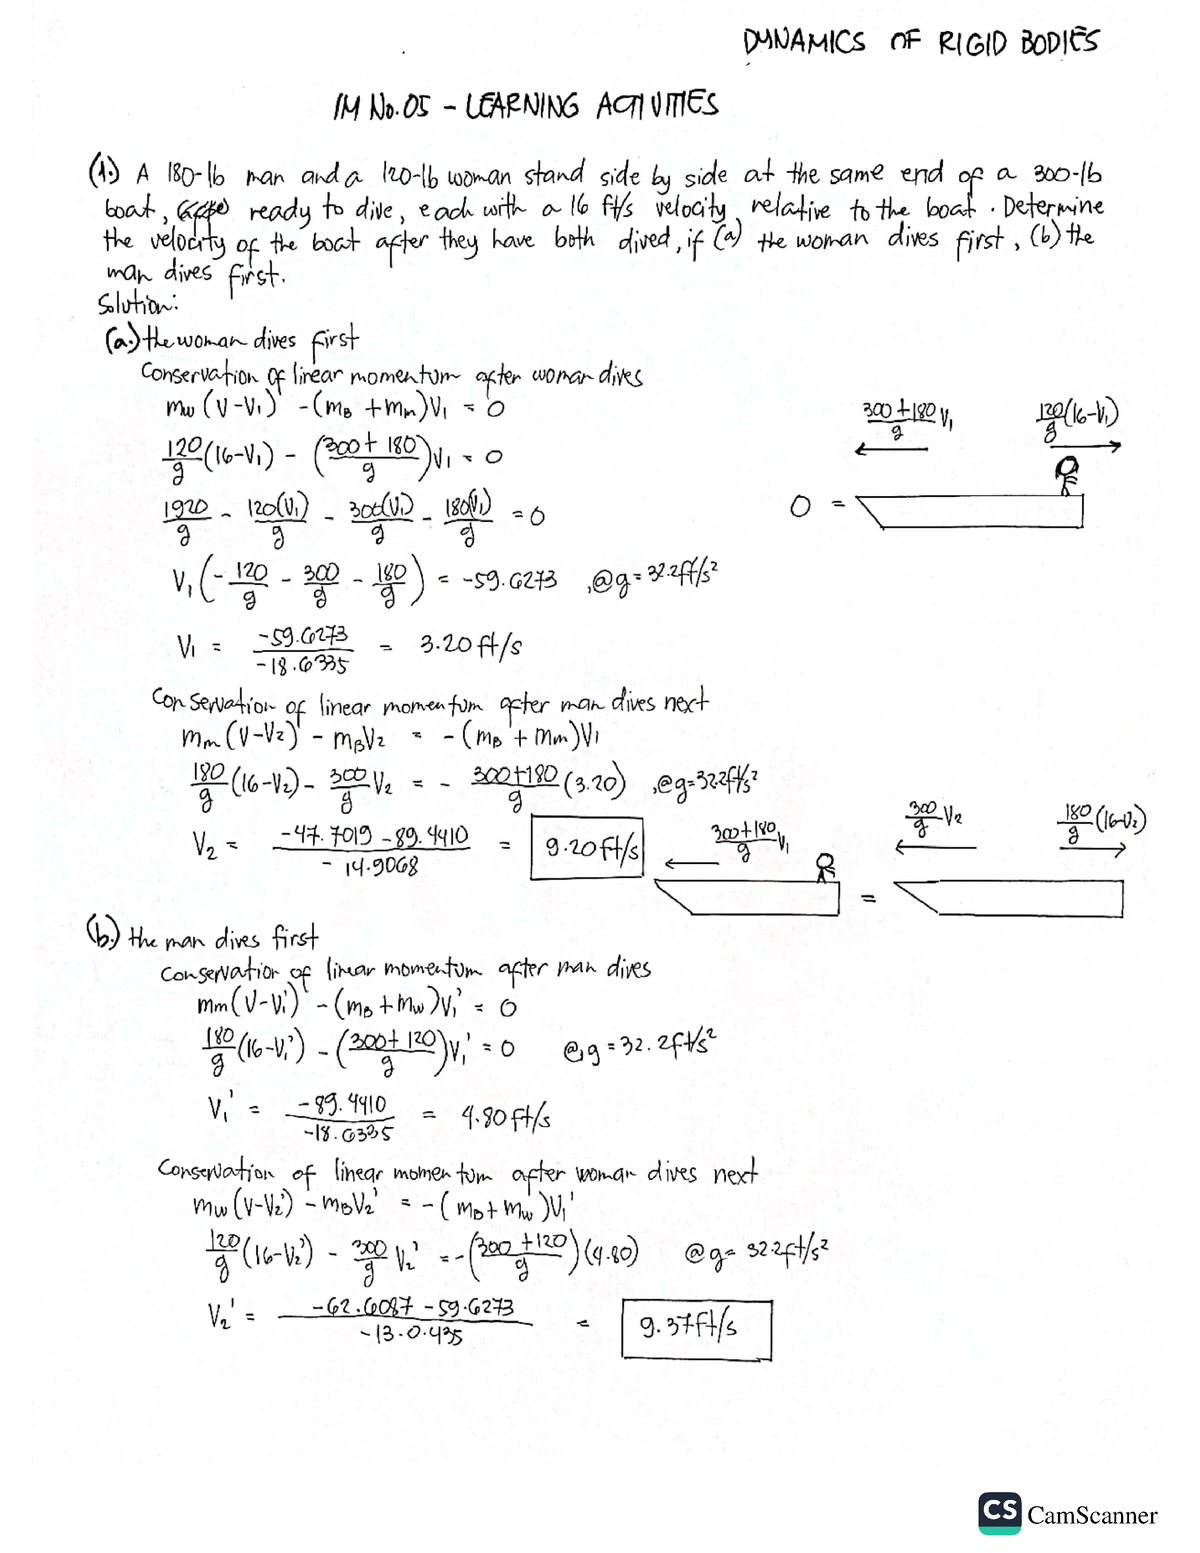 DYNAMICS OF RIGID BODIES
IM No.05 - LEARNING ACTIVITIES
(1.) A 180-lb man and a 120-lb woman stand side by side at the same end of a 300-lb
boat, ready to dive, each with a 16 ft/s velocity relative to the boat. Determine
the velocity of the boat after they have both dived, if (a) the woman dives first, (b) the
man dives first.
Solution:
(a.) the woman dives first
Conservation of linear momentum after woman dives
mw (V-V₁) - (mB + mm)V₁ = 0
120/g (16-V₁) - (300 + 180/g)V₁ = 0
1920/g - 120(V₁)/g - 300(V₁)/g - 180(V₁)/g = 0
V₁ (-120/g - 300/g - 180/g) = -59.6273 ,@g = 32.2ft/s²
V₁ = -59.6273/-18.6335 = 3.20 ft/s
300+180/g V₁
120/g (16-V₁)
0 =
Conservation of linear momentum after man dives next
mm (V-V₂) - mBV₂ = -(mB + mm)V₁
180/g (16-V₂) - 300/g V₂ = - 300+180/g (3.20) ,@g=32.2ft/s²
V₂ = -47.7019 -89.4410/-14.9068 = 9.20ft/s
300+180/g V₁
=
300/g V₂
180/g (16-V₂)
(b.) the man dives first
Conservation of linear momentum after man dives
mm (V-V₁') - (mB + mw)V₁' = 0
180/g (16-V₁') - (300+ 120/g)V₁' = 0 @g = 32.2ft/s²
V₁' = -89.4410/-18.6335 = 4.80 ft/s
Conservation of linear momentum after woman dives next
mw (V-V₂') - mBV₂' = -(mB + mw)V₁'
120/g (16-V₂') - 300/g V₂' = -(300 +120/g)(4.80) @g= 32.2ft/s²
V₂' = -62.6087 -59.6273/-13.0.435 = 9.37ft/s
CS CamScanner